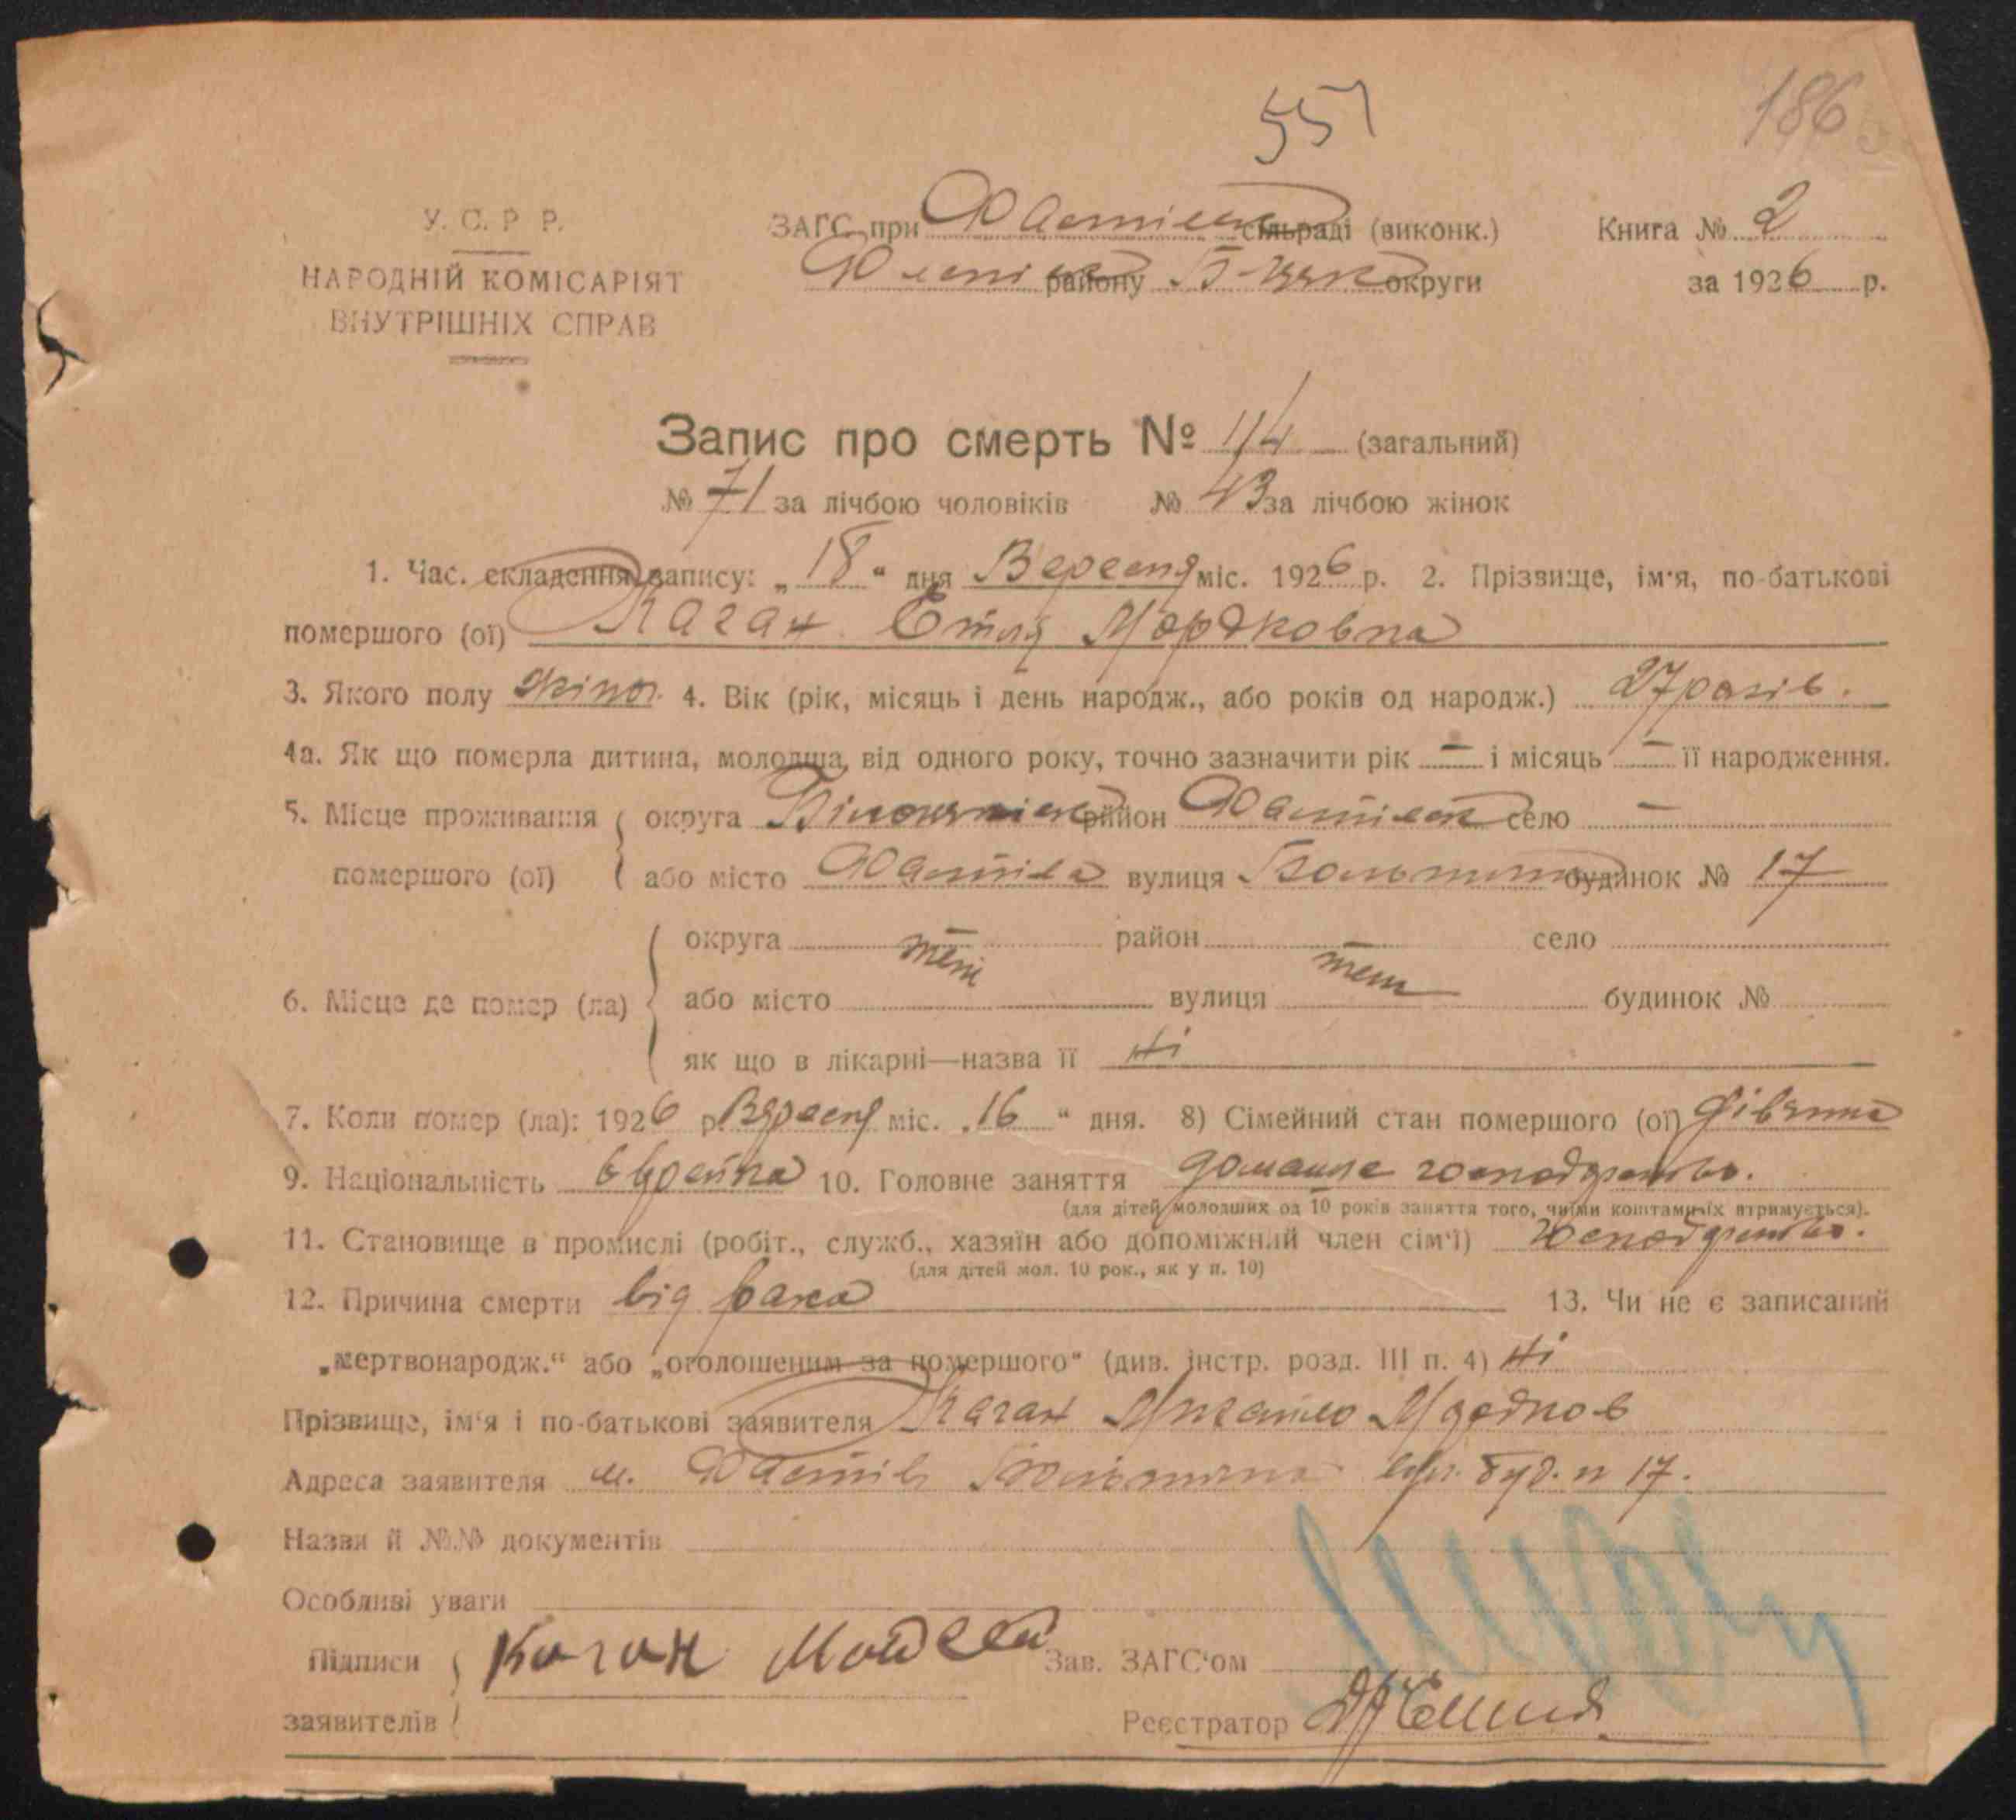 551
186
У. С. Р. Р.
НАРОДНІЙ КОМІСАРІЯТ
ВНУТРІШНІХ СПРАВ
ЗАГС при Фастівськ сільраді (виконк.)
району Б-Церк округи
Книга № 2
за 1926 р.
Запис про смерть № 114 (загальний)
№ 71 за лічбою чоловіків № 43 за лічбою жінок
1. Час. складення запису: „ 18 “ дня Вересня міс. 1926 р. 2. Прізвище, ім'я, по-батькові
помершого (ої) Каган Етля Мордковна
3. Якого полу жіноч. 4. Вік (рік, місяць і день народж., або років од народж.) 27 років.
4а. Як що померла дитина, молодша від одного року, точно зазначити рік — і місяць — її народження.
5. Місце проживання округа район Фастівськ село —
помершого (ої) або місто Фастів вулиця будинок № 17
округа теж район теж село
6. Місце де помер (ла) або місто вулиця будинок №
як що в лікарні—назва її Ні
7. Коли помер (ла): 1926 р. Вересня міс. „ 16 “ дня. 8) Сімейний стан помершого (ої) дівчина
9. Національність єврейка 10. Головне заняття домашнє господарство.
(для дітей молодших од 10 років заняття того, чиїми коштами їх втримується).
11. Становище в промислі (робіт., служб., хазяїн або допоміжний член сім'ї) господарство.
(для дітей мол. 10 рок., як у п. 10)
12. Причина смерти від рака 13. Чи не є записаний
„мертвонародж.“ або „оголошеним за помершого“ (див. інстр. розд. III п. 4) Ні
Прізвище, ім'я і по-батькові заявителя Каган
Адреса заявителя м. Фастів вул. буд. н 17.
Назви й №№ документів
Особливі уваги
Підписи Каган Мойсей Зав. ЗАГС'ом
заявителів Реєстратор